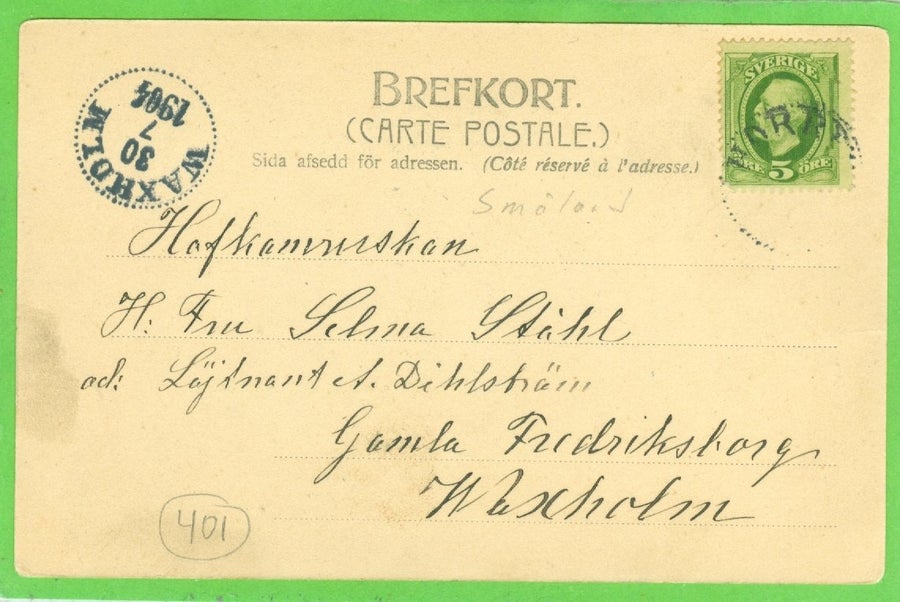 BREFKORT.
(CARTE POSTALE.)
Sida afsedd för adressen. (Côté réservé à l'adresse.)
SVERIGE
5
ÖRE
WAXHOLM
30
7
1904
Småland
H: Fru Selma Ståhl
ad: Löjtnant A. Dihlström
Gamla Fredriksborg
Waxholm
401